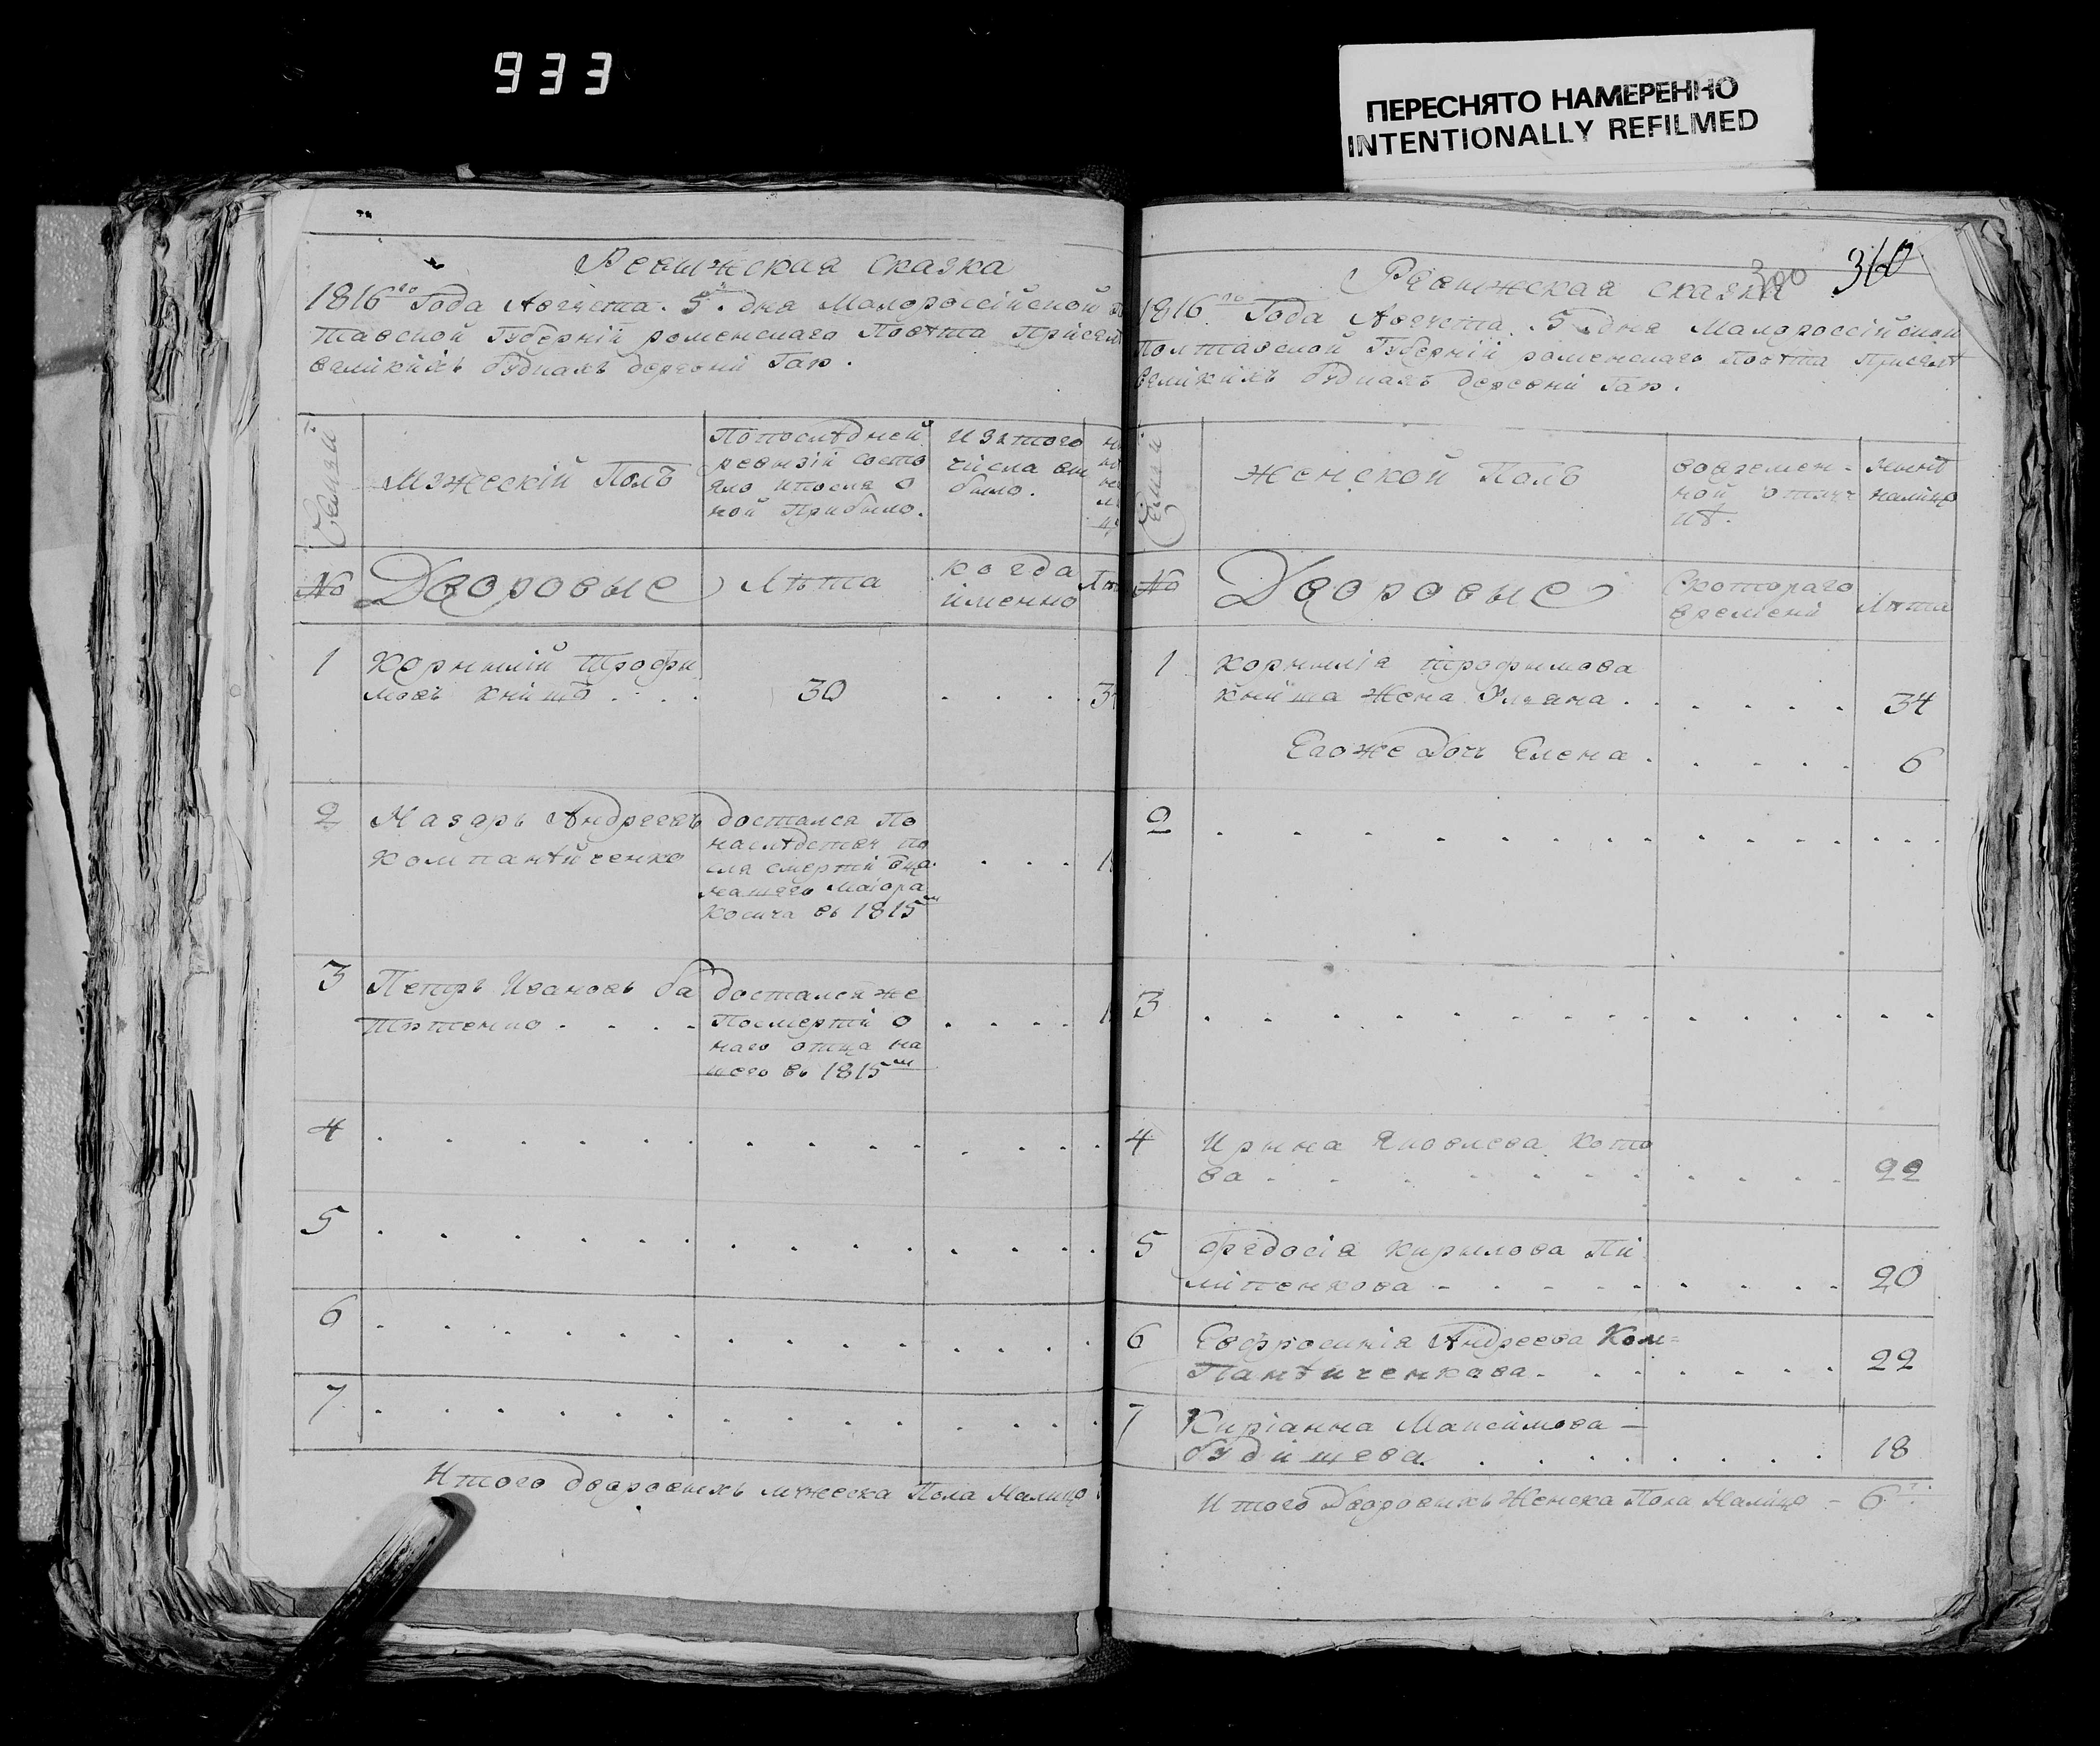 933
ПЕРЕСНЯТО НАМЕРЕННО
INTENTIONALLY REFILMED
Ревижская сказка
1816го Года Августа. 5. дня Малороссійской
тавской Губерніи роменскаго Повѣта При селѣ
великихъ будкахъ деревни Гаю.
Семьи
Мужескій Полъ
По последней
ревизіи состо
яло и после о
ной Прибыло.
Изътого
числа вы
было.
№
Дворовые
Лѣта
когда
именно
1
Корнилій Трофи
мовъ Книшъ . . .
30
2
Назаръ Андреевъ
Компанѣйченко
достался По
наслѣдству по
сле смерти отца
нашего Маіора
Косича въ 1815м
3
Петръ Ивановъ Ба
тютенко . . . .
достался же
По смерти о
наго отца на
шего въ 1815м
4
5
6
7
Итого дворовыхъ мужеска Пола Налицо
300
310
Ревижская сказка
1816го Года Августа. 5. дня Малороссійской
Полтавской Губерніи роменскаго повѣта При селѣ
великихъ будкахъ деревни Гаю.
Семьи
Женской Полъ
во времен-
ной отлуч
кѣ.
Нынѣ
налицо
№
Дворовые
С котораго
времени
Лѣта
1
Корнилія трофимова
книша Жена Уляна . . . . . . .
34
Его же Дочь Елена . . . . . .
6
2
3
4
Ирина Яковлева Кото
ва - . . . . . . . .
22
5
Федосія Кирилова Пи
липенкова - . . . . . . .
20
6
Евфросинія Андреева Ком=
Панѣйченкова . . . . . . .
22
7
Киріанна Максимова —
будищева . . . . . . . .
18
Итого Дворовыхъ Женска Пола Налицо - 6ть